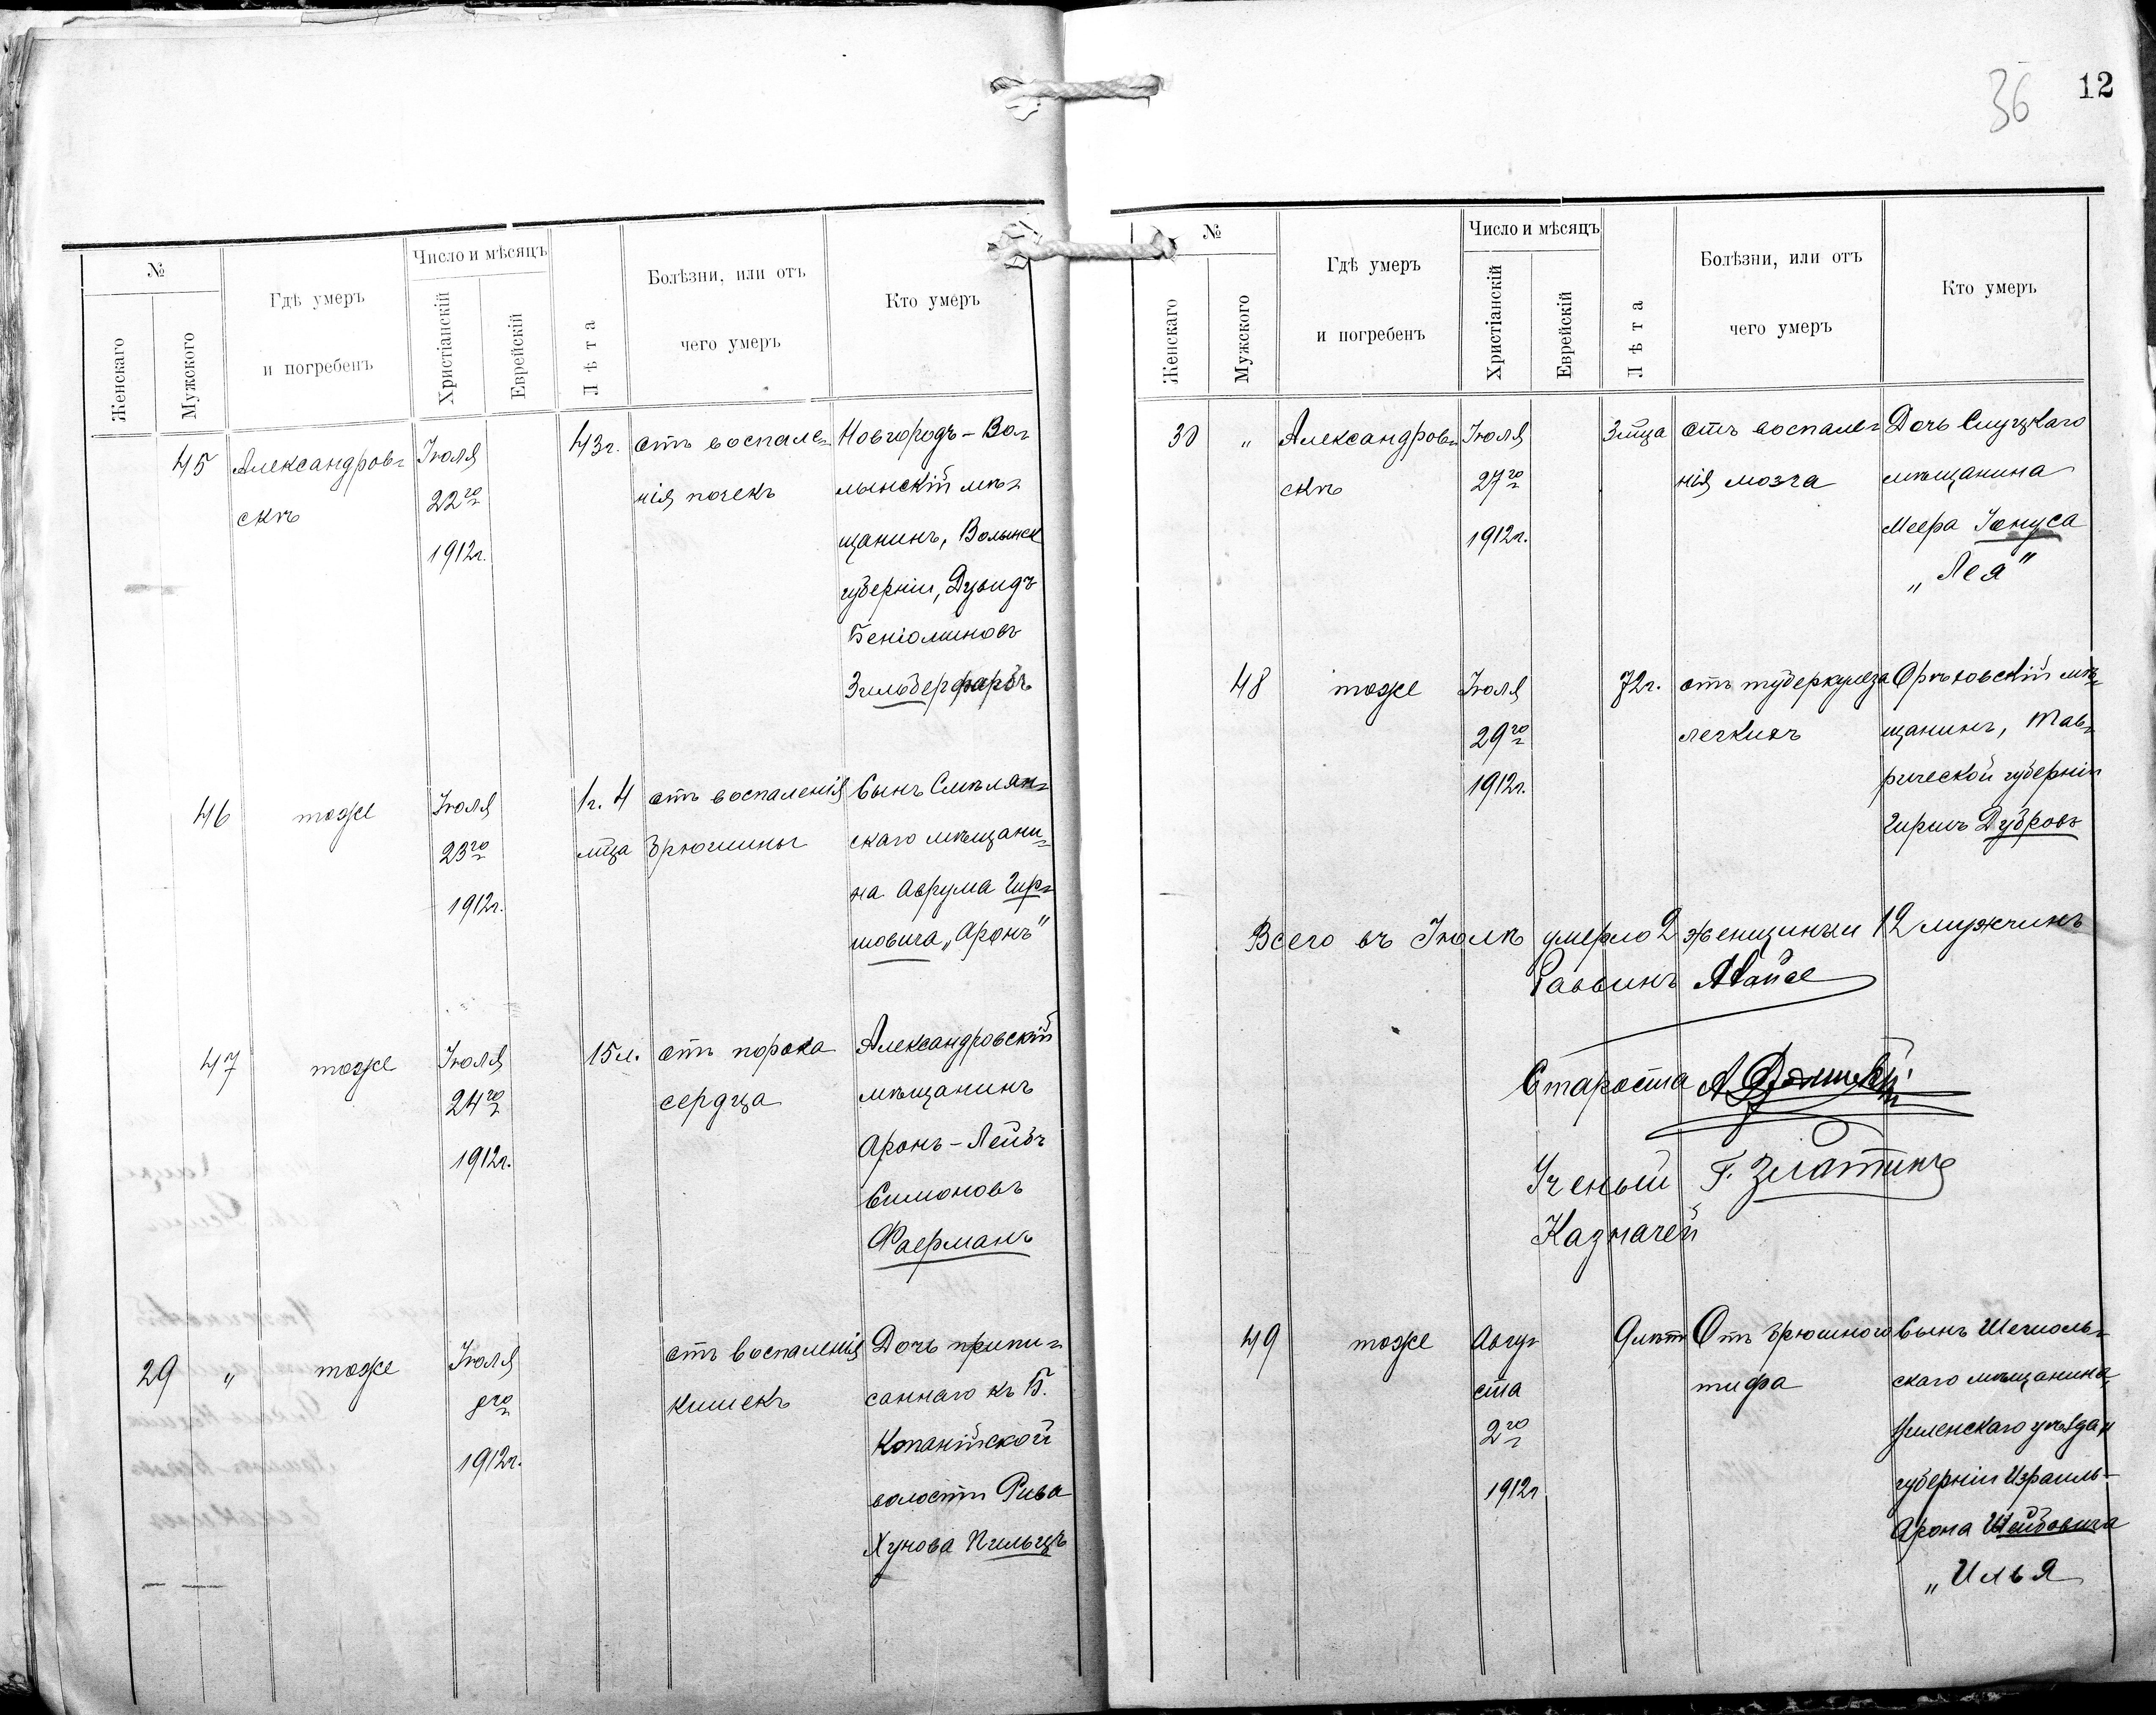 36 12
№
Женскаго
Мужского
Гдѣ умеръ
и погребенъ
Число и мѣсяцъ
Христіанскій
Еврейскій
Лѣта
Болѣзни, или отъ
чего умеръ
Кто умеръ
45 Александров- Іюля 43г. отъ воспале- Новгородъ-Во-
скѣ 22го нія почекъ лынскій мѣ-
1912г. щанинъ, Волынск
губерніи, Дувидъ
Беніоминовъ
Зильберфарбъ
46 тоже Іюля 1г. 4 отъ воспаленія Сынъ Смѣлян-
23го мца брюшины скаго мѣщани-
1912г. на Аврума Гир-
шовича „Аронъ"
47 тоже Іюля 15л. отъ порока Александровскій
24го сердца мѣщанинъ
1912г. Аронъ-Лейбъ
Симоновъ
Фаерманъ
29 " тоже Іюля отъ воспаленія Дочь припи-
го кишекъ саннаго къ Б.
1912г. Копанійской
волости Рива
Хунова
№
Женскаго
Мужского
Гдѣ умеръ
и погребенъ
Число и мѣсяцъ
Христіанскій
Еврейскій
Лѣта
Болѣзни, или отъ
чего умеръ
Кто умеръ
30 " Александров- Іюля 3мца отъ воспале- Дочь Слуцкаго
скѣ 27го нія мозга мѣщанина
1912г. Меера Іонуса
„Лея"
48 тоже Іюля 72г. отъ туберкулеза Орѣховскій мѣ-
29го легкихъ щанинъ, Тав-
1912г. рической губерніи
Гиршъ Дубровъ
Всего въ Іюлѣ умерло 2 женщины и 12 мужчинъ
Раввинъ
Староста
Ученый Г. Златинъ
Казначей
49 тоже Авгу- 9лѣтъ Отъ брюшного Сынъ
ста тифа скаго мѣщанина,
2го Виленскаго уѣзда и
1912г губерніи Израиль-
Арона
„Илья